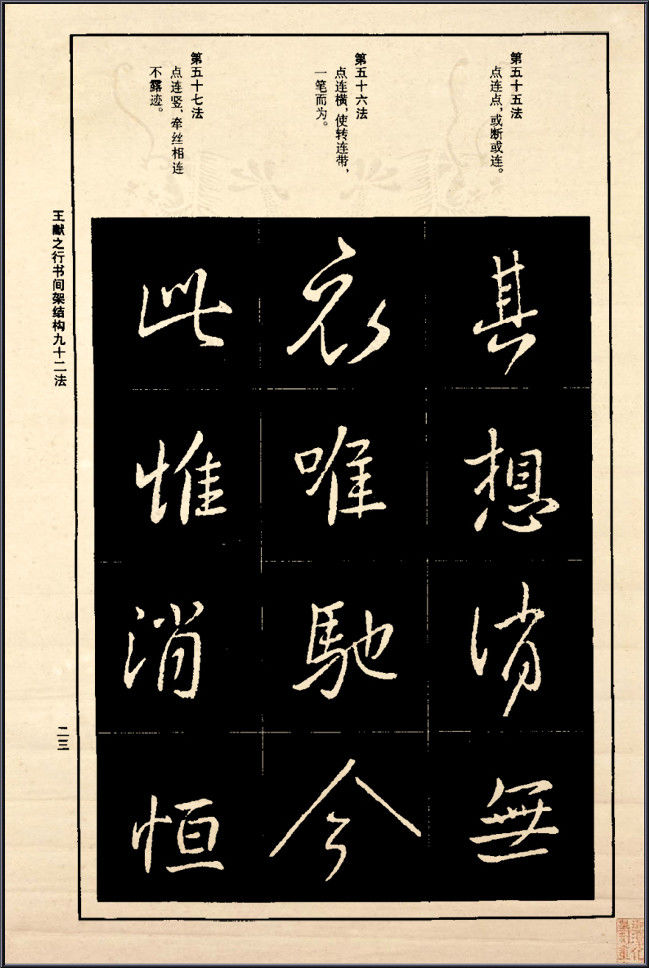 第五十五法
点连点，或断或连。
第五十六法
点连横，使转连带，
一笔而为。
第五十七法
点连竖，牵丝相连
不露迹。
其想悄無
衣唯馳今
此惟消恒
王献之行书间架结构九十二法
二三